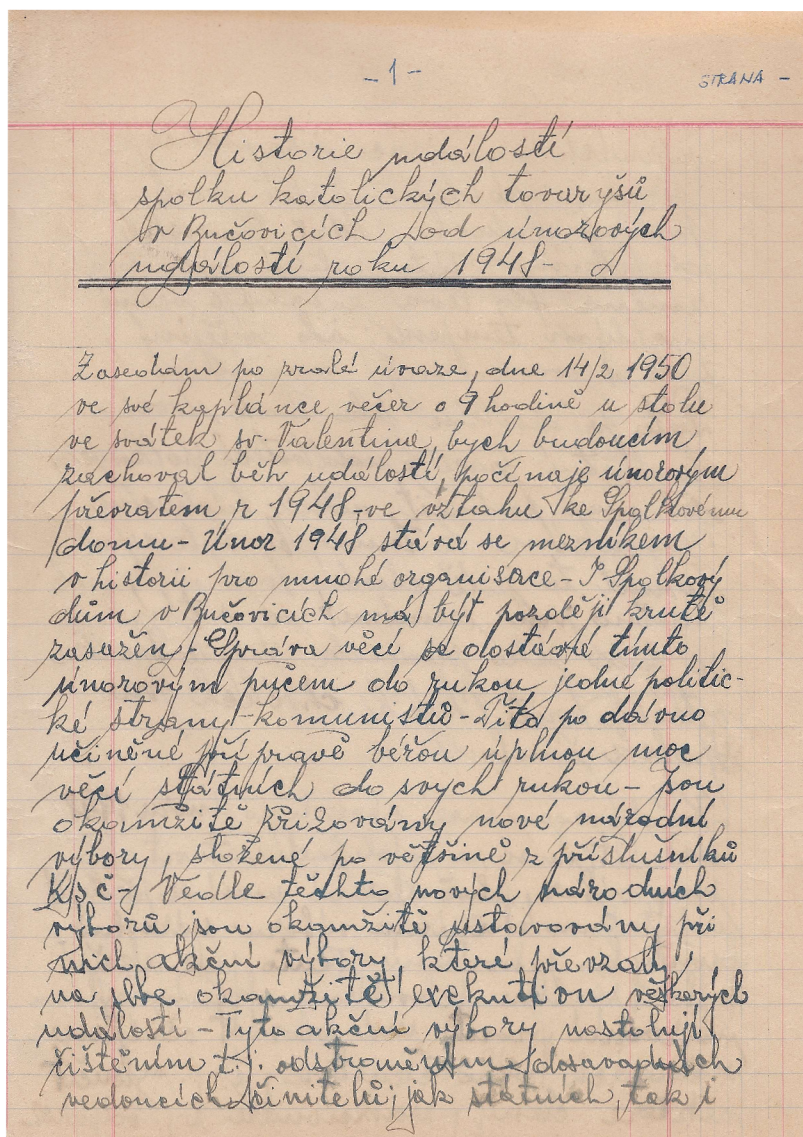 -1-
STRANA -
Historie událostí
spolku katolických tovaryšů
v Bučovicích od únorových
událostí roku 1948-
Zasedám po zralé úvaze, dne 14/2 1950
ve své kaplánce večer o 9 hodině u stolu
ve svátek sv. Valentina, bych budoucím
zachoval běh událostí, počínaje únorovým
převratem r 1948-ve vztahu ke Spolkovému
domu- Únor 1948 stává se mezníkem
v historii pro mnohé organisace- I Spolkový
dům v Bučovicích má být později krutě
zasažen- Správa věcí se dostává tímto
únorovým pučem do rukou jedné politic-
ké strany-komunistů- Tito po dávno
učiněné přípravě béřou úplnou moc
věcí státních do svych rukou- Jsou
okamžitě nové národní
výbory, složené po většině z příslušníků
KSČ- Vedle těchto nových národních
výborů jsou okamžitě ustavovány při
nich akční výbory, které převzaly
na sebe okamžitě exekutivu veškerých
událostí- Tyto akční výbory nastolují
čištěním t.j. odstraněním dosavadních
vedoucích činitelů, jak státních, tak i